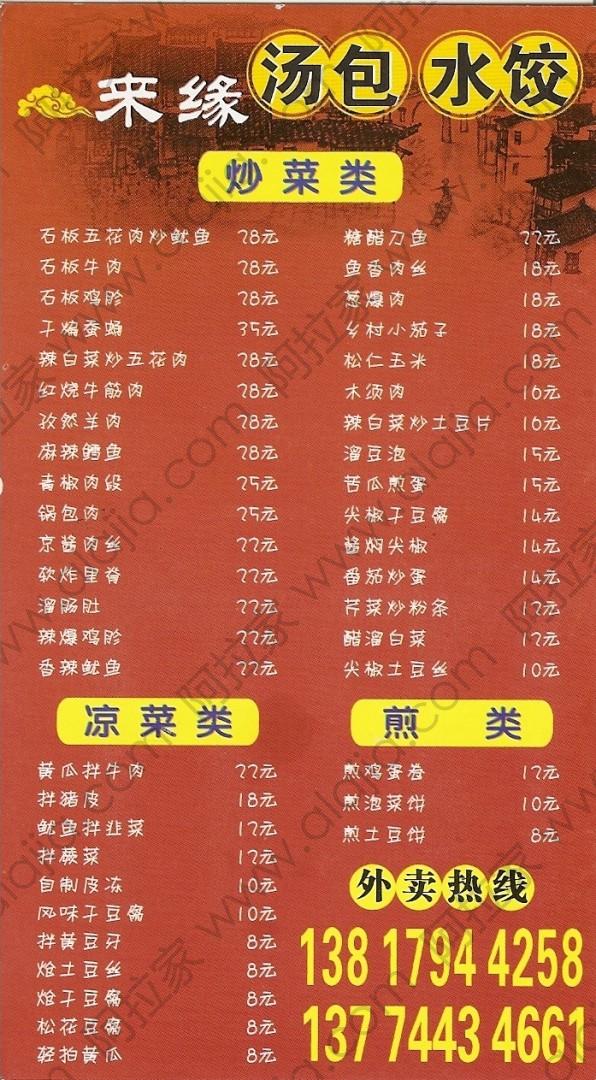 来缘 汤包 水饺
炒菜类
石板五花肉炒鱿鱼 28元
石板牛肉 28元
石板鸡胗 28元
干煸蚕蛹 35元
辣白菜炒五花肉 28元
红烧牛筋肉 28元
孜然羊肉 28元
麻辣鳕鱼 28元
青椒肉段 25元
锅包肉 25元
京酱肉丝 22元
软炸里脊 22元
溜肠肚 22元
辣爆鸡胗 22元
香辣鱿鱼 22元
糖醋刀鱼 22元
鱼香肉丝 18元
葱爆肉 18元
乡村小茄子 18元
松仁玉米 18元
木须肉 16元
辣白菜炒土豆片 16元
溜豆泡 15元
苦瓜煎蛋 15元
尖椒干豆腐 14元
酱焖尖椒 14元
番茄炒蛋 14元
芹菜炒粉条 12元
醋溜白菜 12元
尖椒土豆丝 10元
凉菜类
黄瓜拌牛肉 22元
拌猪皮 18元
鱿鱼拌韭菜 12元
拌蕨菜 12元
自制皮冻 10元
风味干豆腐 10元
拌黄豆牙 8元
炝土豆丝 8元
炝干豆腐 8元
松花豆腐 8元
轻拍黄瓜 8元
煎 类
煎鸡蛋卷 12元
煎泡菜饼 10元
煎土豆饼 8元
外卖热线
138 1794 4258
137 7443 4661
阿拉家 www.alajia.com